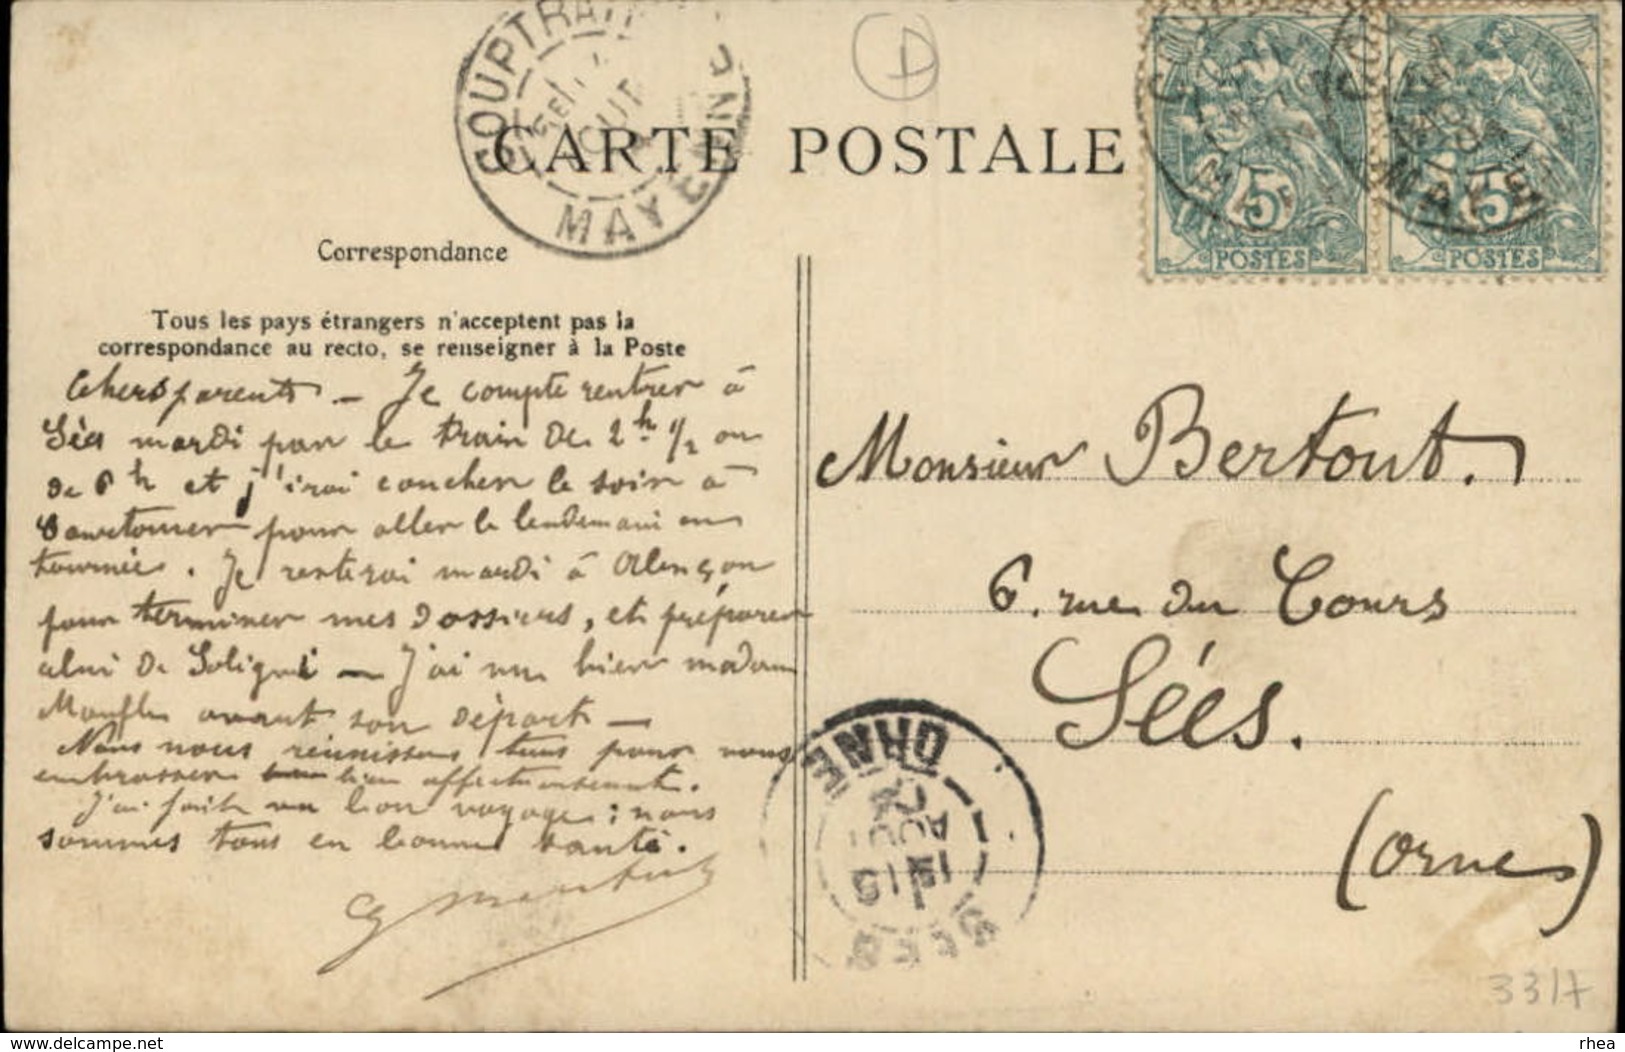 CARTE POSTALE
SOUPTRAIN
MAYENNE
5
POSTES
5
POSTES
MAYE
Correspondance
Tous les pays étrangers n'acceptent pas la
correspondance au recto, se renseigner à la Poste
Chers parents – Je compte rentrer à
Sées mardi par le train de 2h 1/2 ou
de 6h et j'irai coucher le soir à
pour aller le lendemain en
tournée. Je resterai mardi à Alençon
pour terminer mes dossiers, et préparer
celui de Soligni – J'ai vu hier madame
avant son départ –
Nous nous réunissons tous pour vous
embrasser bien affectueusement.
J'ai fait un bon voyage ; nous
sommes tous en bonne santé.
Monsieur Bertout.
6. rue du Cours
Sées.
(Orne)
ORNE
SEES
3317
delcampe.net
rhea